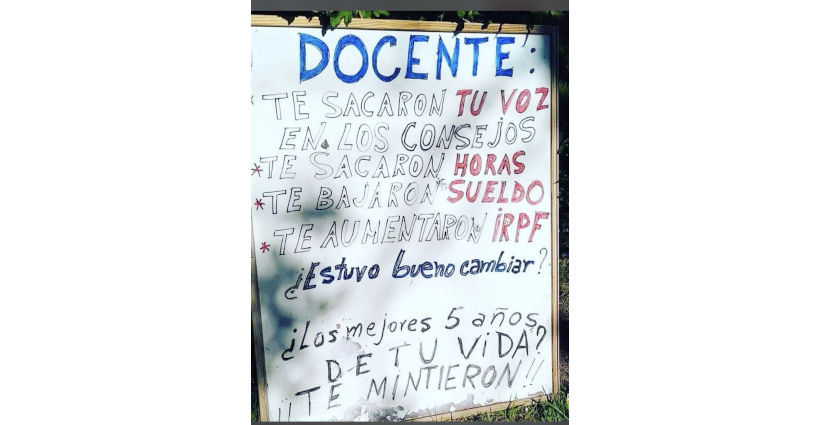 DOCENTE:
*TE SACARON TU VOZ
EN LOS CONSEJOS
*TE SACARON HORAS
*TE BAJARON SUELDO
*TE AUMENTARON IRPF
¿Estuvo bueno cambiar?
¿Los mejores 5 años
DE TU ViDA?
¡¡TE MINTIERON!!